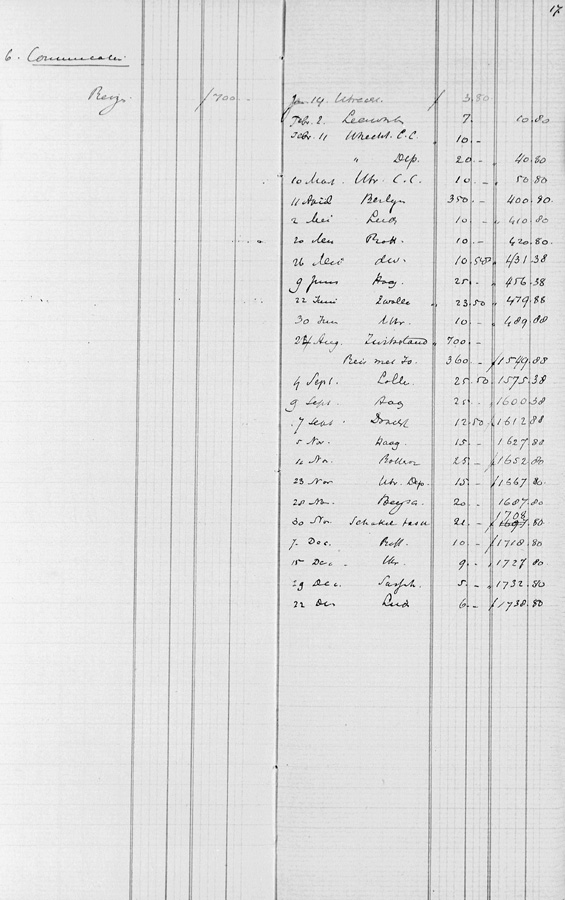 17
6. Communicatie
Reizen ƒ 700 -
Jan. 14 Utrecht ƒ 3.80
Febr. 2. Leeuward 7. - 10.80
Febr. 11 Utrecht C.C. 10. -
" Dep. 20 - 40.80
10 Maart Utr. C.C. 10 - 50.80
11 April Berlijn 350. - 400.80
2 Mei 10 - 410.80
20 Mei Rott. 10. - 420.80
26 Mei div. 10.50 431.38
9 Juni Haag 25. - 456.38
22 Juni Zwolle 23.50 479.88
30 Juni Utr. 10 - 489.88
24 Aug. Zwitserland 700. -
Reis met Fo. 360. - ƒ 1549.88
4 Sept. 25.50 1575.38
9 Sept. Haag 25. - 1600.38
7 Sept. 12.50 ƒ 1612.88
5 Nov. Haag 15. - 1627.80
Nov. 25. - ƒ 1652.80
23 Nov Utr. Dep. 15. - ƒ 1667.80
28 Nov. 20. - 1687.80
30 Nov. 21. - ƒ 1708.80
7. Dec. Rott. 10 - ƒ 1718.80
15 Dec. Utr. 9. - 1727.80
29 Dec. 5. - 1732.80
22 Dec 6. - ƒ 1738.80